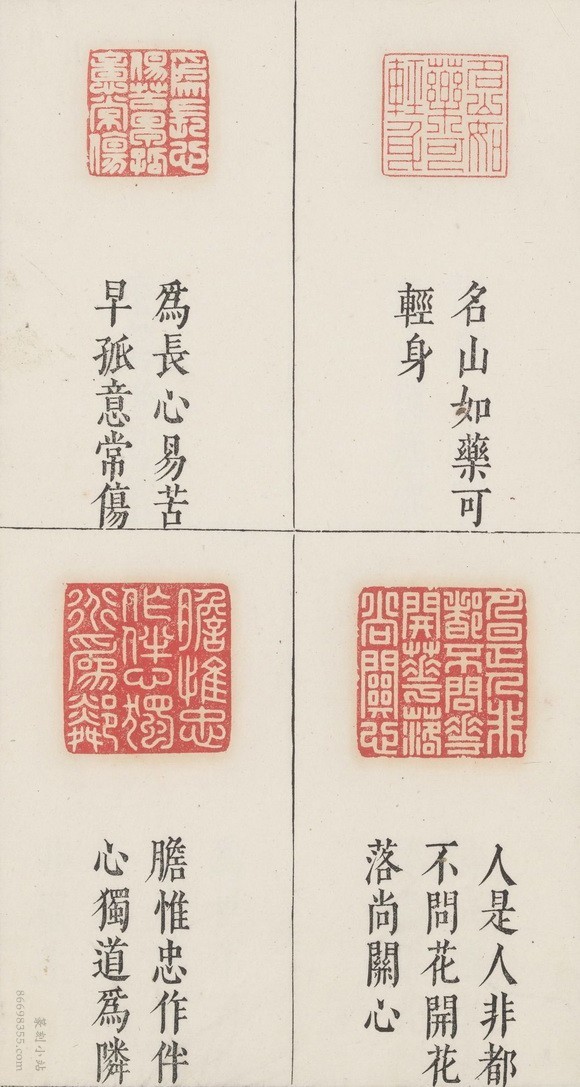 名山如藥可
輕身
爲長心易苦
早孤意常傷
人是人非都
不問花開花
落尚關心
膽惟忠作伴
心獨道爲隣
篆刻小站
86698355.com